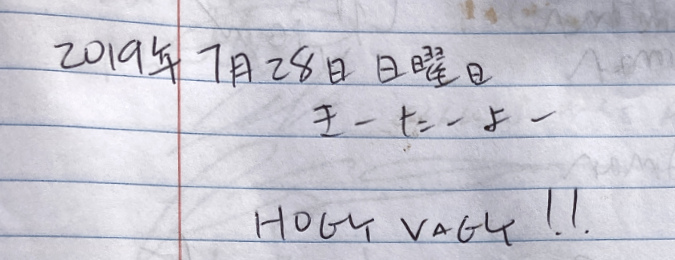 2019年 7月28日 日曜日
モーたーよー
HOGY VAGY !!